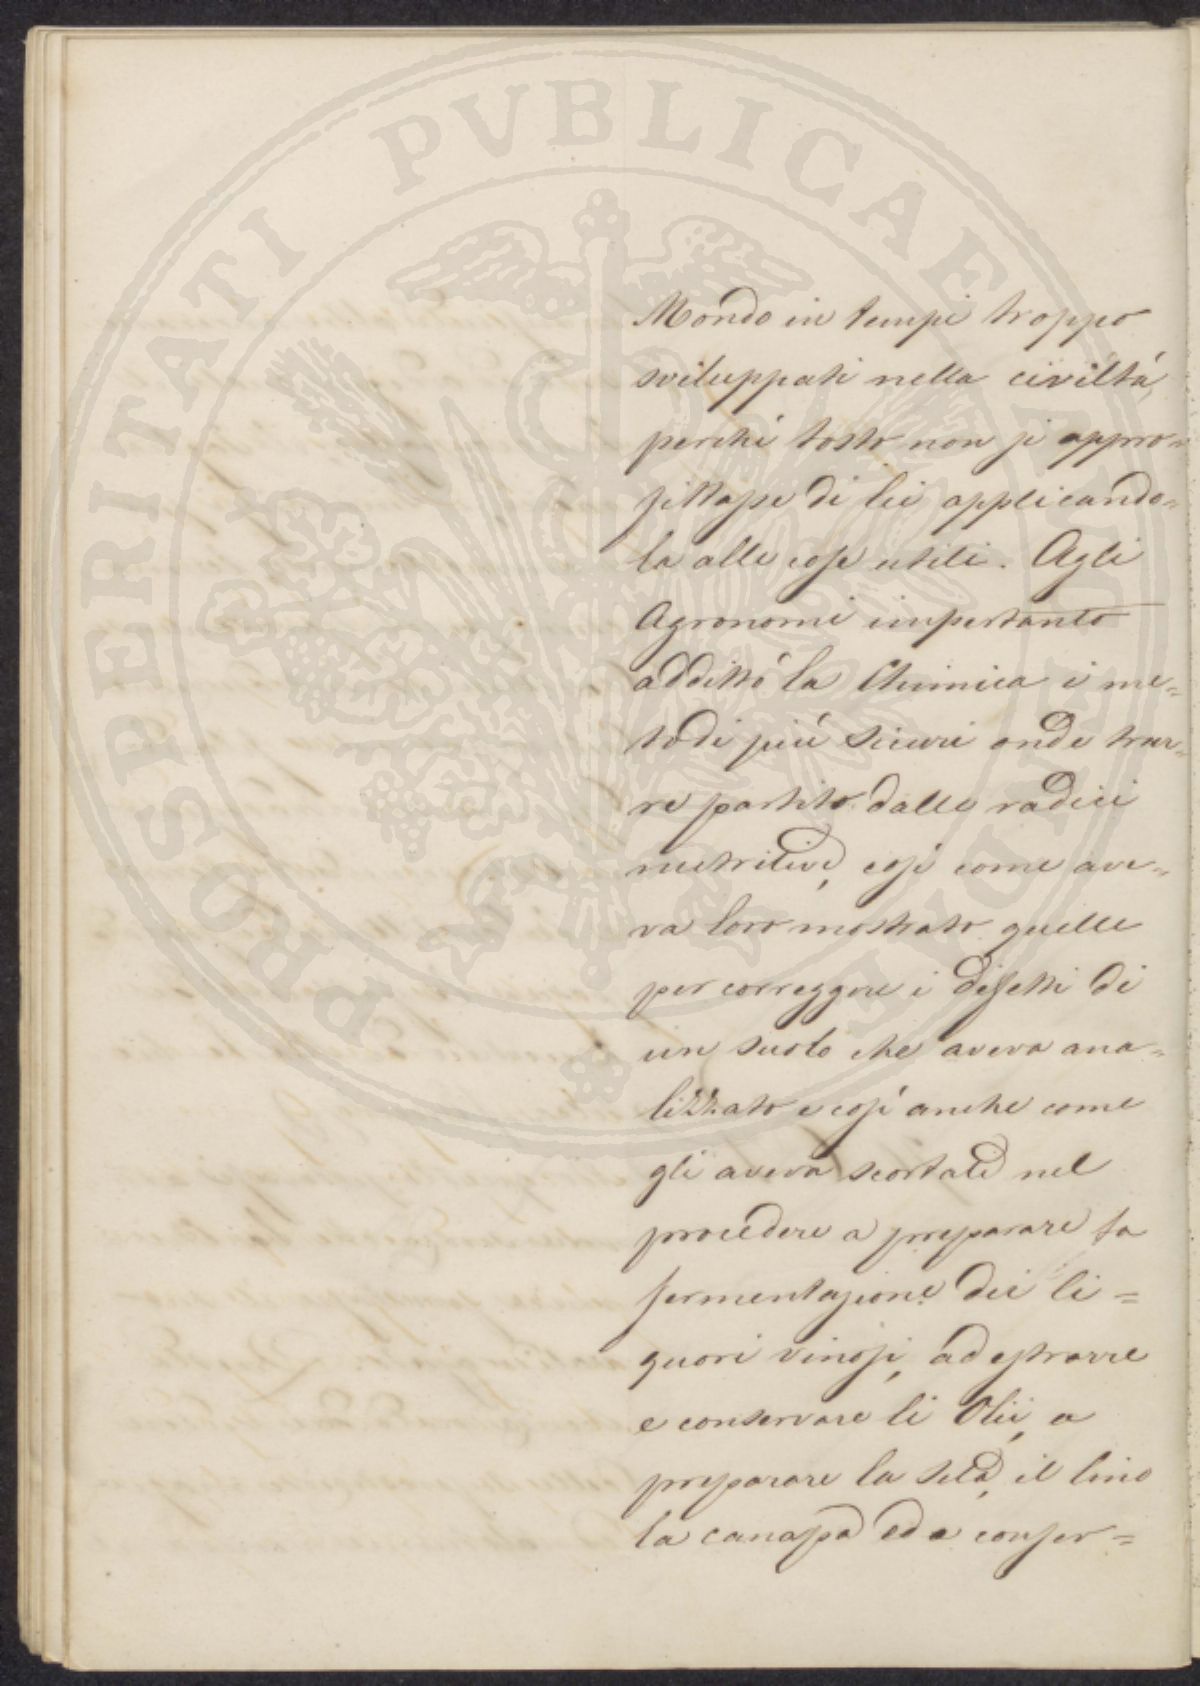 PROSPERITATI PVBLICAE AVGENDAE
Mondo in tempi troppo
sviluppati nella civiltá,
perché tosto non si appro=
fittasse di lei applicando=
la alle cose utili. Agli
Agronomi impertanto
addittó la Chimica i me=
todi piú sicuri onde trar=
re partito dalle radici
nutritive, cosí come ave=
va loro mostrato quelle
per correggere i difetti di
un suolo che aveva ana=
lizzato e cosí anche come
gli aveva scortati nel
procedere a preparare la
fermentazione dei li=
quori vinosi, ad estrarre
e conservare li Olii, a
preparare la seta, il lino
la canapa ed a conser=